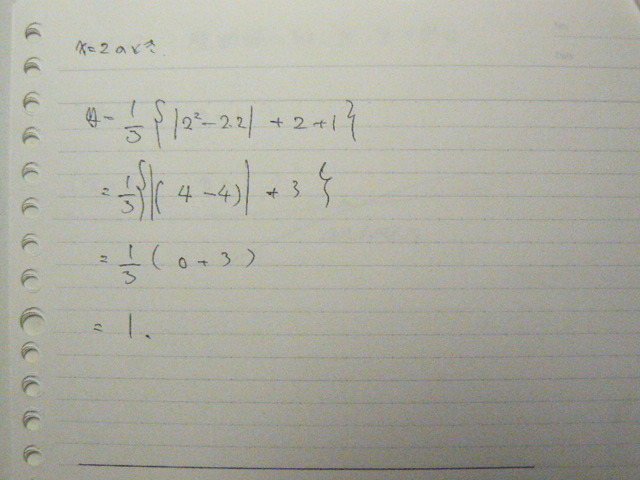 x=2のとき
y=1/3{|2²-2.2|+2+1}
=1/3{|(4-4)|+3}
=1/3(0+3)
=1.